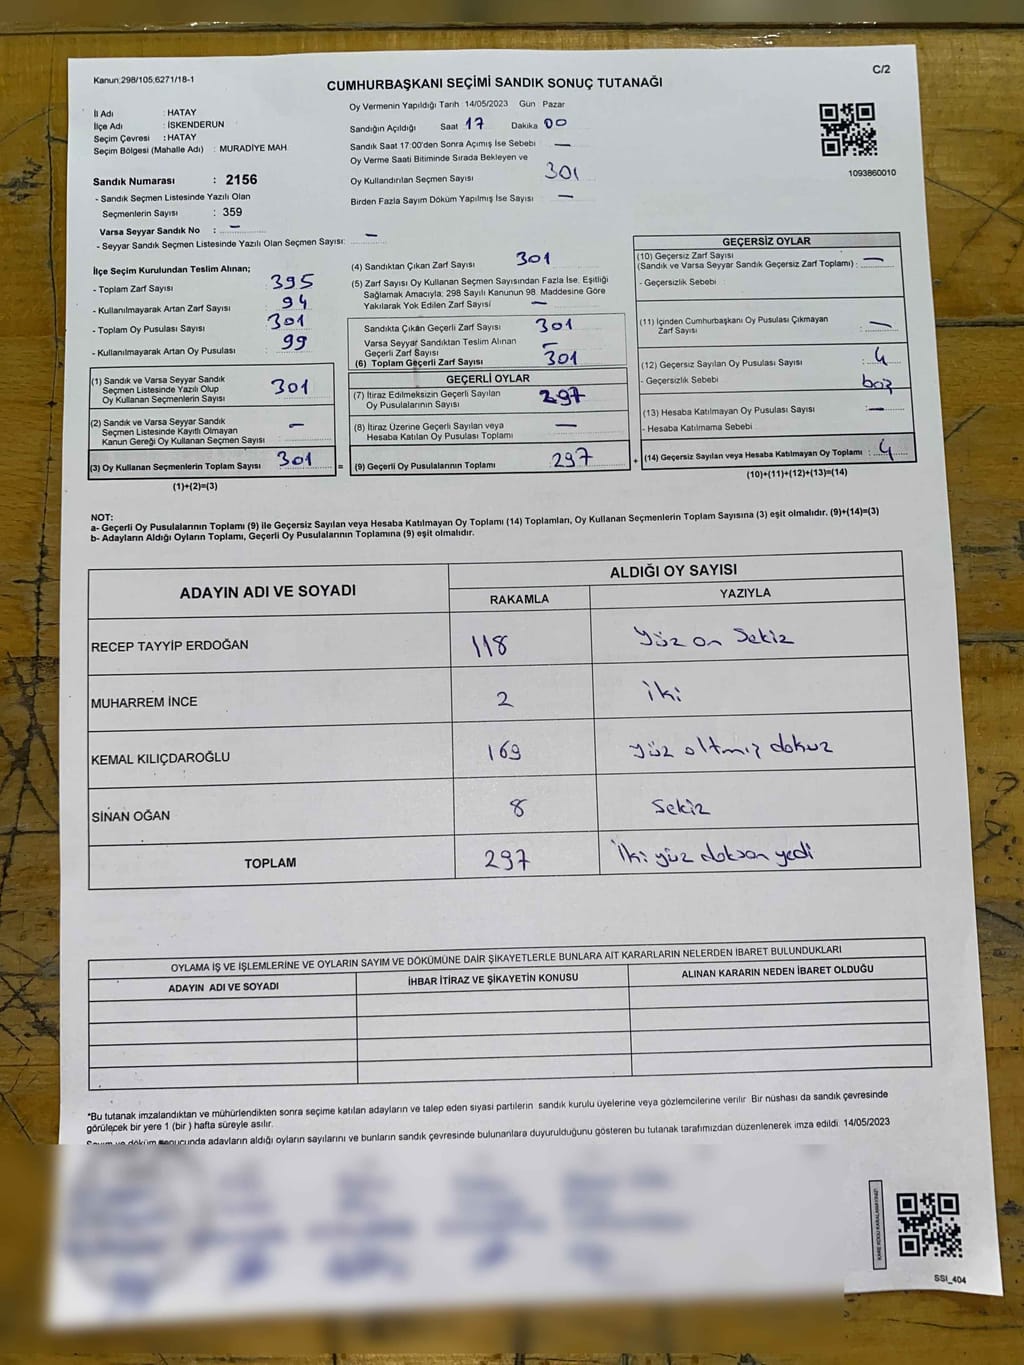 Kanun:298/105,6271/18-1
C/2
CUMHURBAŞKANI SEÇİMİ SANDIK SONUÇ TUTANAĞI
İl Adı : HATAY
İlçe Adı : İSKENDERUN
Seçim Çevresi : HATAY
Seçim Bölgesi (Mahalle Adı) : MURADİYE MAH
Sandık Numarası : 2156
- Sandık Seçmen Listesinde Yazılı Olan
Seçmenlerin Sayısı : 359
Varsa Seyyar Sandık No : –
- Seyyar Sandık Seçmen Listesinde Yazılı Olan Seçmen Sayısı: –
Oy Vermenin Yapıldığı Tarih 14/05/2023 Gün Pazar
Sandığın Açıldığı Saat 17 Dakika 00
Sandık Saat 17:00'den Sonra Açımış İse Sebebi –
Oy Verme Saati Bitiminde Sırada Bekleyen ve
Oy Kullandırılan Seçmen Sayısı 301
Birden Fazla Sayım Döküm Yapılmış İse Sayısı –
1093860010
İlçe Seçim Kurulundan Teslim Alınan;
- Toplam Zarf Sayısı 395
- Kullanılmayarak Artan Zarf Sayısı 94
- Toplam Oy Pusulası Sayısı 301
- Kullanılmayarak Artan Oy Pusulası 99
(1) Sandık ve Varsa Seyyar Sandık
Seçmen Listesinde Yazılı Olup
Oy Kullanan Seçmenlerin Sayısı 301
(2) Sandık ve Varsa Seyyar Sandık
Seçmen Listesinde Kayıtlı Olmayan
Kanun Gereği Oy Kullanan Seçmen Sayısı –
(3) Oy Kullanan Seçmenlerin Toplam Sayısı 301
(1)+(2)=(3)
(4) Sandıktan Çıkan Zarf Sayısı 301
(5) Zarf Sayısı Oy Kullanan Seçmen Sayısından Fazla İse, Eşitliği
Sağlamak Amacıyla; 298 Sayılı Kanunun 98. Maddesine Göre
Yakılarak Yok Edilen Zarf Sayısı –
Sandıkta Çıkan Geçerli Zarf Sayısı 301
Varsa Seyyar Sandıktan Teslim Alınan
Geçerli Zarf Sayısı –
(6) Toplam Geçerli Zarf Sayısı 301
GEÇERLİ OYLAR
(7) İtiraz Edilmeksizin Geçerli Sayılan
Oy Pusulalarının Sayısı 297
(8) İtiraz Üzerine Geçerli Sayılan veya
Hesaba Katılan Oy Pusulası Toplamı –
= (9) Geçerli Oy Pusulalarının Toplamı 297
GEÇERSİZ OYLAR
(10) Geçersiz Zarf Sayısı
(Sandık ve Varsa Seyyar Sandık Geçersiz Zarf Toplamı) : –
- Geçersizlik Sebebi :
(11) İçinden Cumhurbaşkanı Oy Pusulası Çıkmayan
Zarf Sayısı : –
(12) Geçersiz Sayılan Oy Pusulası Sayısı : 4
- Geçersizlik Sebebi : boş
(13) Hesaba Katılmayan Oy Pusulası Sayısı : –
- Hesaba Katılmama Sebebi :
+ (14) Geçersiz Sayılan veya Hesaba Katılmayan Oy Toplamı : 4
(10)+(11)+(12)+(13)=(14)
NOT:
a- Geçerli Oy Pusulalarının Toplamı (9) ile Geçersiz Sayılan veya Hesaba Katılmayan Oy Toplamı (14) Toplamları, Oy Kullanan Seçmenlerin Toplam Sayısına (3) eşit olmalıdır. (9)+(14)=(3)
b- Adayların Aldığı Oyların Toplamı, Geçerli Oy Pusulalarının Toplamına (9) eşit olmalıdır.
ADAYIN ADI VE SOYADI
ALDIĞI OY SAYISI
RAKAMLA YAZIYLA
RECEP TAYYİP ERDOĞAN 118 Yüz on Sekiz
MUHARREM İNCE 2 iki
KEMAL KILIÇDAROĞLU 169 yüz altmış dokuz
SİNAN OĞAN 8 Sekiz
TOPLAM 297 İki yüz doksan yedi
OYLAMA İŞ VE İŞLEMLERİNE VE OYLARIN SAYIM VE DÖKÜMÜNE DAİR ŞİKAYETLERLE BUNLARA AİT KARARLARIN NELERDEN İBARET BULUNDUKLARI
ADAYIN ADI VE SOYADI
İHBAR İTİRAZ VE ŞİKAYETİN KONUSU
ALINAN KARARIN NEDEN İBARET OLDUĞU
*Bu tutanak imzalandıktan ve mühürlendikten sonra seçime katılan adayların ve talep eden siyasi partilerin sandık kurulu üyelerine veya gözlemcilerine verilir. Bir nüshası da sandık çevresinde
görülecek bir yere 1 (bir) hafta süreyle asılır.
Sayım ve döküm sonucunda adayların aldığı oyların sayılarını ve bunların sandık çevresinde bulunanlara duyurulduğunu gösteren bu tutanak tarafımızdan düzenlenerek imza edildi. 14/05/2023
KARE KODU KARALAMAYINIZ!
SSI_404